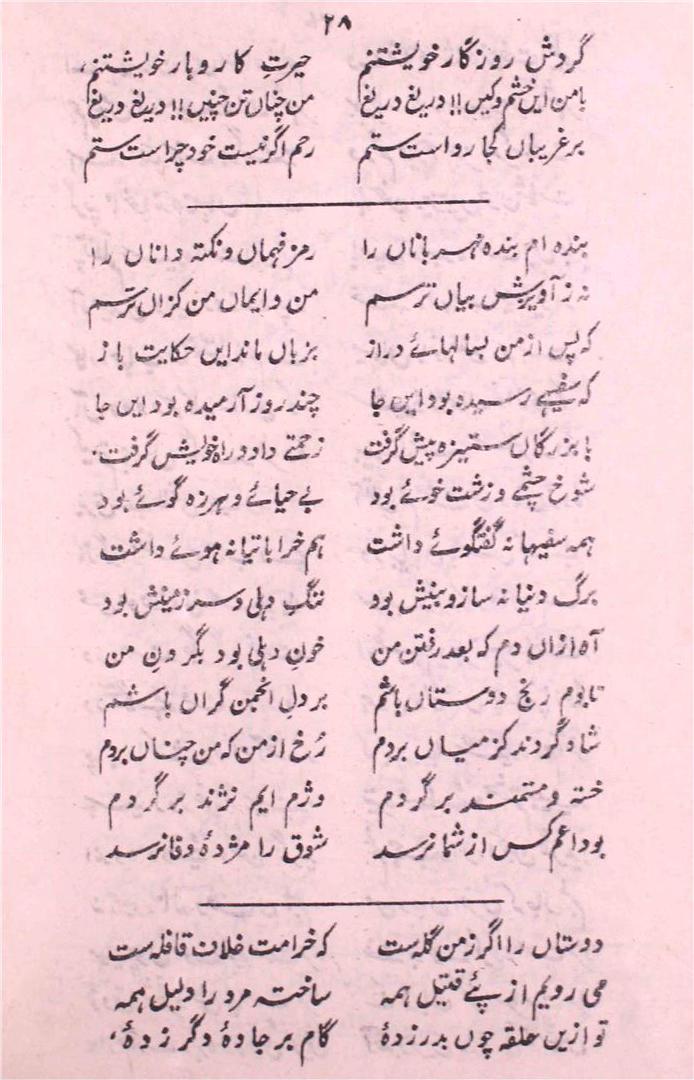 ۲۸
گردش روزگار خویشتنم حیرتِ کاروبار خویشتنم،
بامن ایں خشم و کیں!! دریغ دریغ من چناں تن چنیں!! دریغ دریغ
بر غریباں کجا رواست ستم رحم اگر نیست خود چراست ستم
بندہ ام بندہ مہرباناں را رمز فہماں و نکتہ داناں را
نہ ز آویزش بیاں ترسم من و ایماں من کزاں ترسم
کہ پس از من بسالہائے دراز بزباں ماند ایں حکایت باز
کہ سفیہے رسیدہ بود ایں جا چند روز آرمیدہ بود ایں جا
با بزرگاں ستیزہ پیش گرفت زحمتے داد و راہ خویش گرفت.
شوخ چشمے و زشت خوئے بود بے حیائے و ہرزہ گوئے بود
ہمہ سفیہانہ گفتگوئے داشت ہم خراباتیانہ ہوئے داشت
برگ دنیا نہ ساز و بینش بود ننگِ دہلی و سرزمینش بود
آہ ازاں دم کہ بعد رفتن من خونِ دہلی بود بگردنِ من
تابوم رنج دوستاں باشم بر دل انجمن گراں باشم
شاد گردند کز میاں بردم رُخ از من کہ من چناں بردم
خستہ و مستمند برگردم وژم ایم نژند برگردم
بوداعم کس از شما نرسد شوق را مژدۂ وفا نرسد
دوستاں را اگر ز من گلہ ست کہ خرامت خلاف قافلہ ست
می رویم از پئے قتیل ہمہ ساختہ مرو را دلیل ہمہ
تو ازیں حلقہ چوں بدر زدۂ گام بر جادۂ دگر زدۂ،